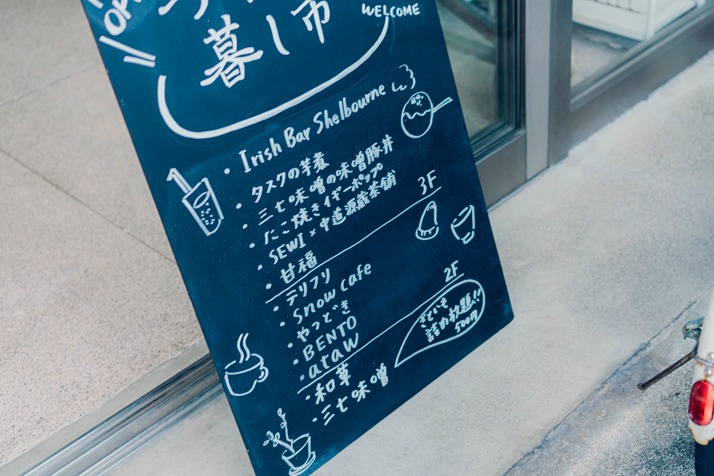 OP
WELCOME
暮し市
・Irish Bar Shelbourne
・タスクの芋煮
・三七味噌の味噌豚丼
・たこ焼きイギーポップ
・SEWI×中道源蔵茶舗
・甘福
3F
・テリフリ
・Snow cafe
・やつどき
・BENTO
・ataW
2F
・和草
・三七味噌
さといも
詰め放題!!
500円